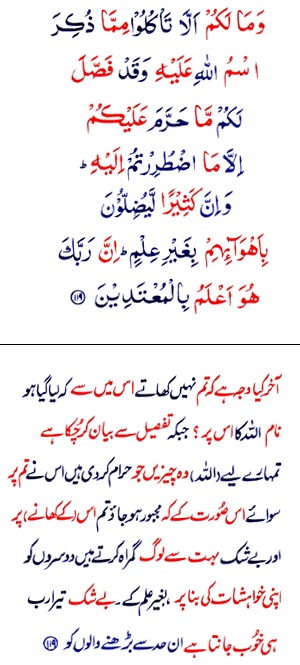 وَمَا لَكُمْ اَلَّا تَاْكُلُوْا مِمَّا ذُكِرَ
اسْمُ اللهِ عَلَيْهِ وَقَدْ فَصَّلَ
لَكُمْ مَّا حَرَّمَ عَلَيْكُمْ
اِلَّا مَا اضْطُرِرْتُمْ اِلَيْهِ ؕ
وَاِنَّ كَثِيْرًا لَّيُضِلُّوْنَ
بِاَهْوَآئِهِمْ بِغَيْرِ عِلْمٍ ؕ اِنَّ رَبَّكَ
هُوَ اَعْلَمُ بِالْمُعْتَدِيْنَ ۝۱۱۹
آخر کیا وجہ ہے کہ تم نہیں کھاتے اس میں سے کہ لیا گیا ہو
نام اللہ کا اس پر؟ جبکہ تفصیل سے بیان کر چُکا ہے
تمہارے لیے (اللہ) وہ چیزیں جو حرام کردی ہیں اس نے تم پر
سوائے اس صُورت کے کہ مجبور ہو جاؤ تم اس (کے کھانے) پر
اور بے شک بہت سے لوگ گمراہ کرتے ہیں دوسروں کو
اپنی خواہشات کی بنا پر بغیر علم کے۔ بے شک تیرا رب
ہی خُوب جانتا ہے ان حد سے بڑھنے والوں کو ۝۱۱۹